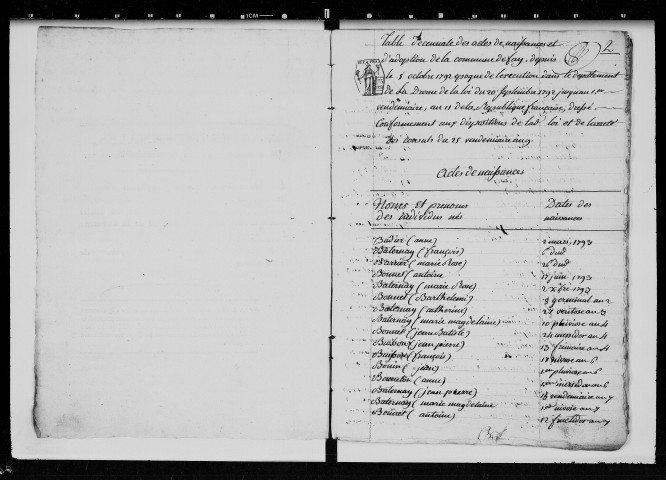 2
Table Decennale des actes de naissances et
d'adoption de la commune de fay, depuis
le 8 octobre 1792 epoque de l'execution dans le departement
de La Drome de la loi du 20 septembre 1792 jusqu'au 1er
vendemiaire, an 11 de la Republique française, dressé
Conformement aux dispositions de lad. loi et de l'arreté
des consuls du 25 vendemiaire an 9
Actes de naissances
Noms Et prenoms Dates des
Des individus nés naissances
(anne) 2 mars, 1793
Baternay (françois) 6 dud
Barrier (marie Rose) 26 dud
Bonnet (antoine 17 juin 1793
Baternay (marie Rose) 2 xbre 1793
Bonnet (Barthelemi) 8 germinal an 2
Baternay (catherine) 27 ventose an 3
Baternay (marie magdelaine) 10 pluviose an 4
Bonnet (jean Batiste) 24 messidor an 4
(jean pierre) 13 frimaire an 4
Buisson (françois) 17 nivose an 6
Bouin (jean) 1er pluviose an 6
(anne) 1er messidor an 6
Baternay (jean pierre) 18 vendemiaire an 7
Baternay (marie magdelaine 1er nivose an 7
Bonnet (antoine) 12 fructidor an 7